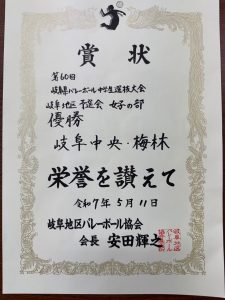 賞状
第60回
岐阜県バレーボール中学生選抜大会
岐阜地区 予選会 女子の部
優勝
岐阜中央・梅林
栄誉を讃えて
令和7年5月11日
岐阜地区バレーボール協会
会長 安田輝之